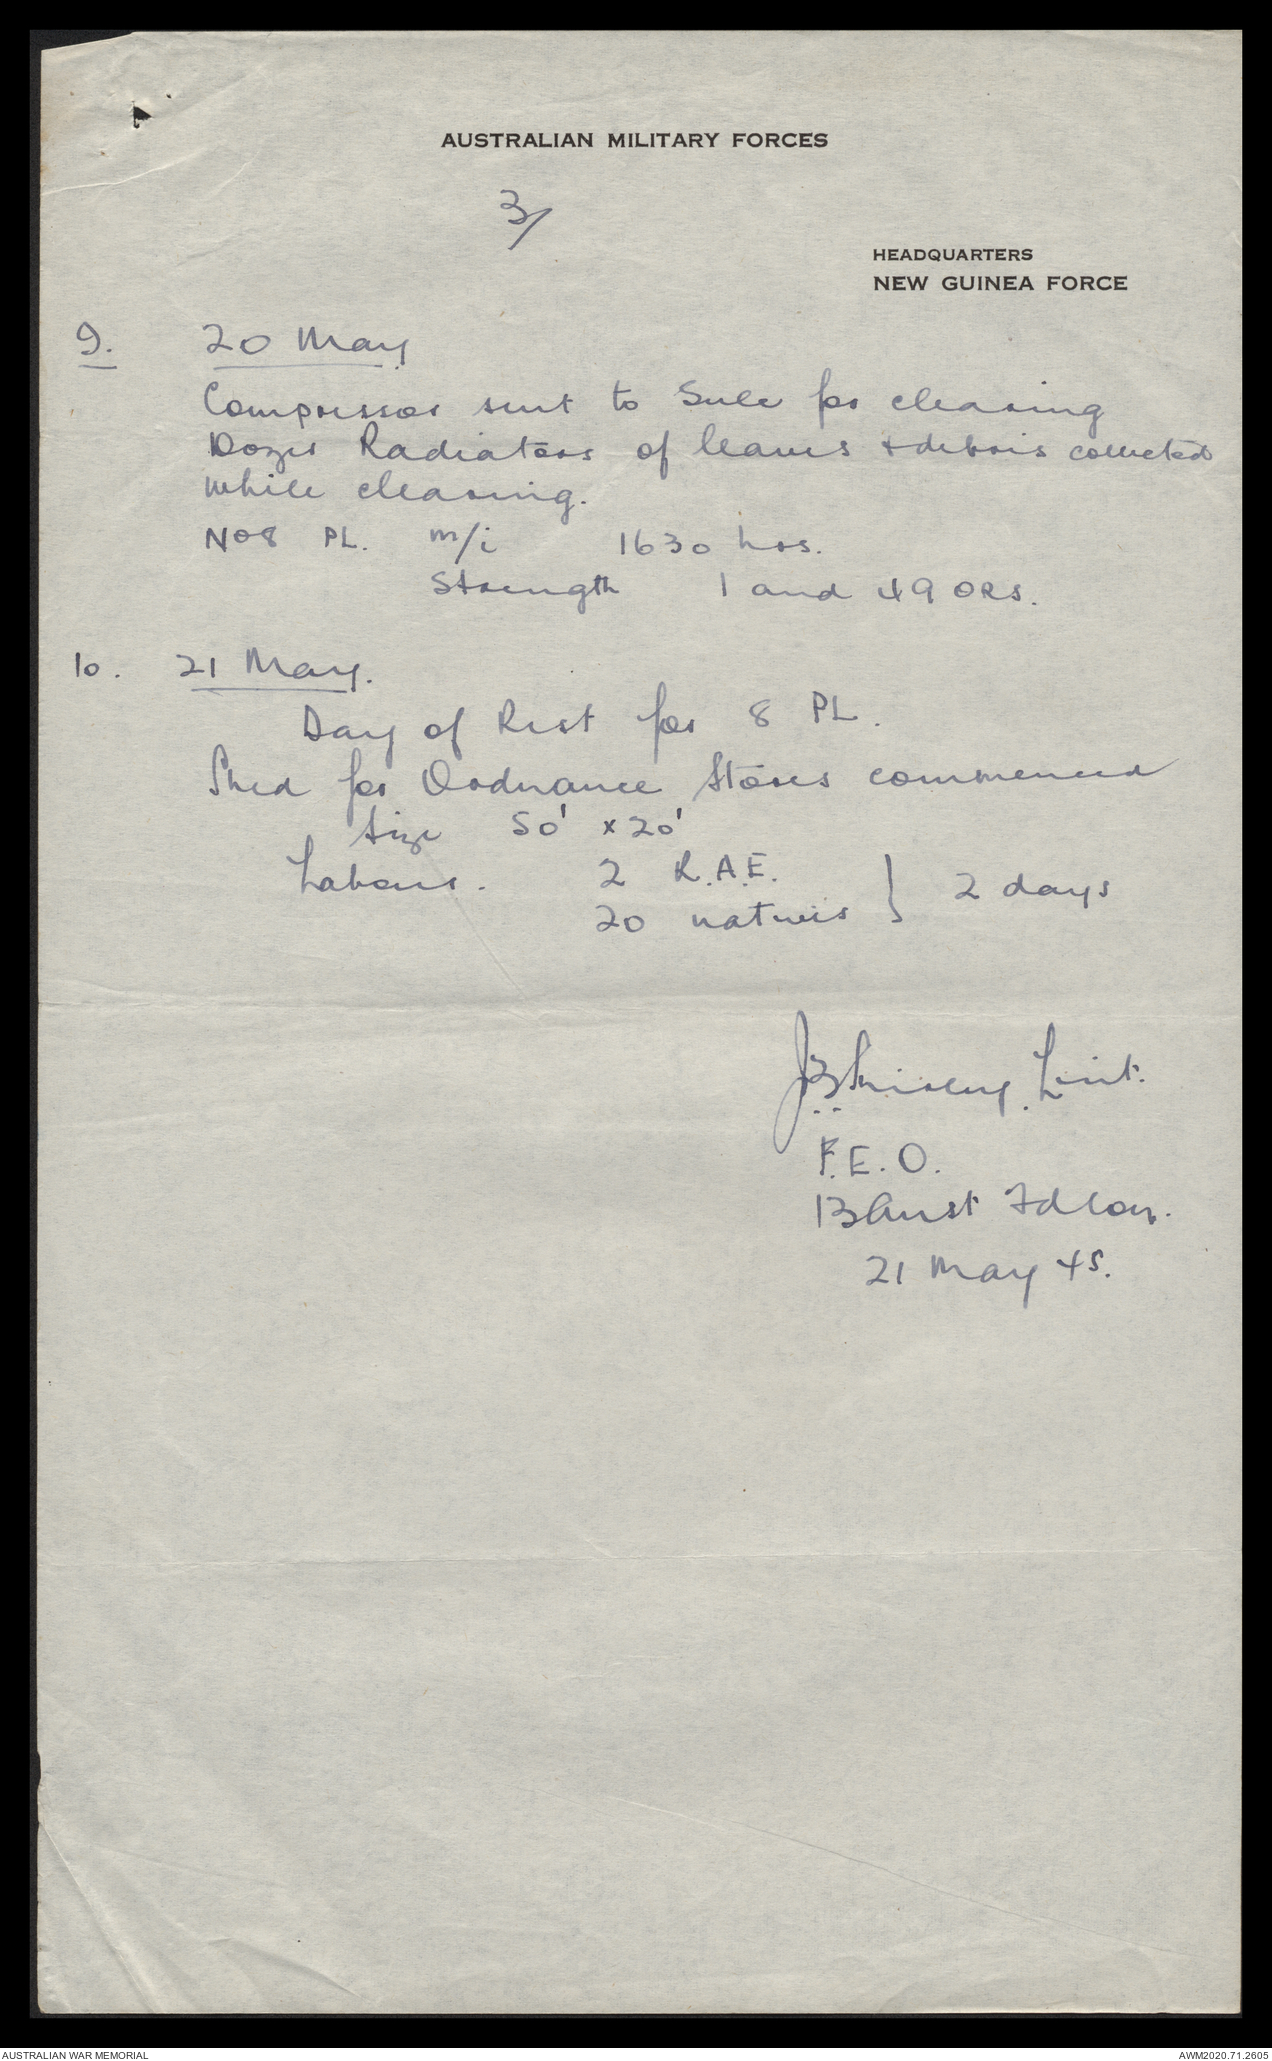 AUSTRALIAN MILITARY FORCES
3/
HEADQUARTERS
NEW GUINEA FORCE
9. 20 May
Compressor sent to Sule for clearing
Dozer Radiators of leaves & debris collected
while clearing.
No 8 PL. m/i 1630 hrs.
Strength 1 and 49 ORS.
10. 21 May.
Day of Rest for 8 PL.
Shed for Ordnance Stores commenced
size 50' x 20'
Labour. 2 R.A.E. } 2 days
20 natives
Lieut.
F.E.O.
13 Aust Fd Coy.
21 May 45.
AUSTRALIAN WAR MEMORIAL
AWM2020.71.2605